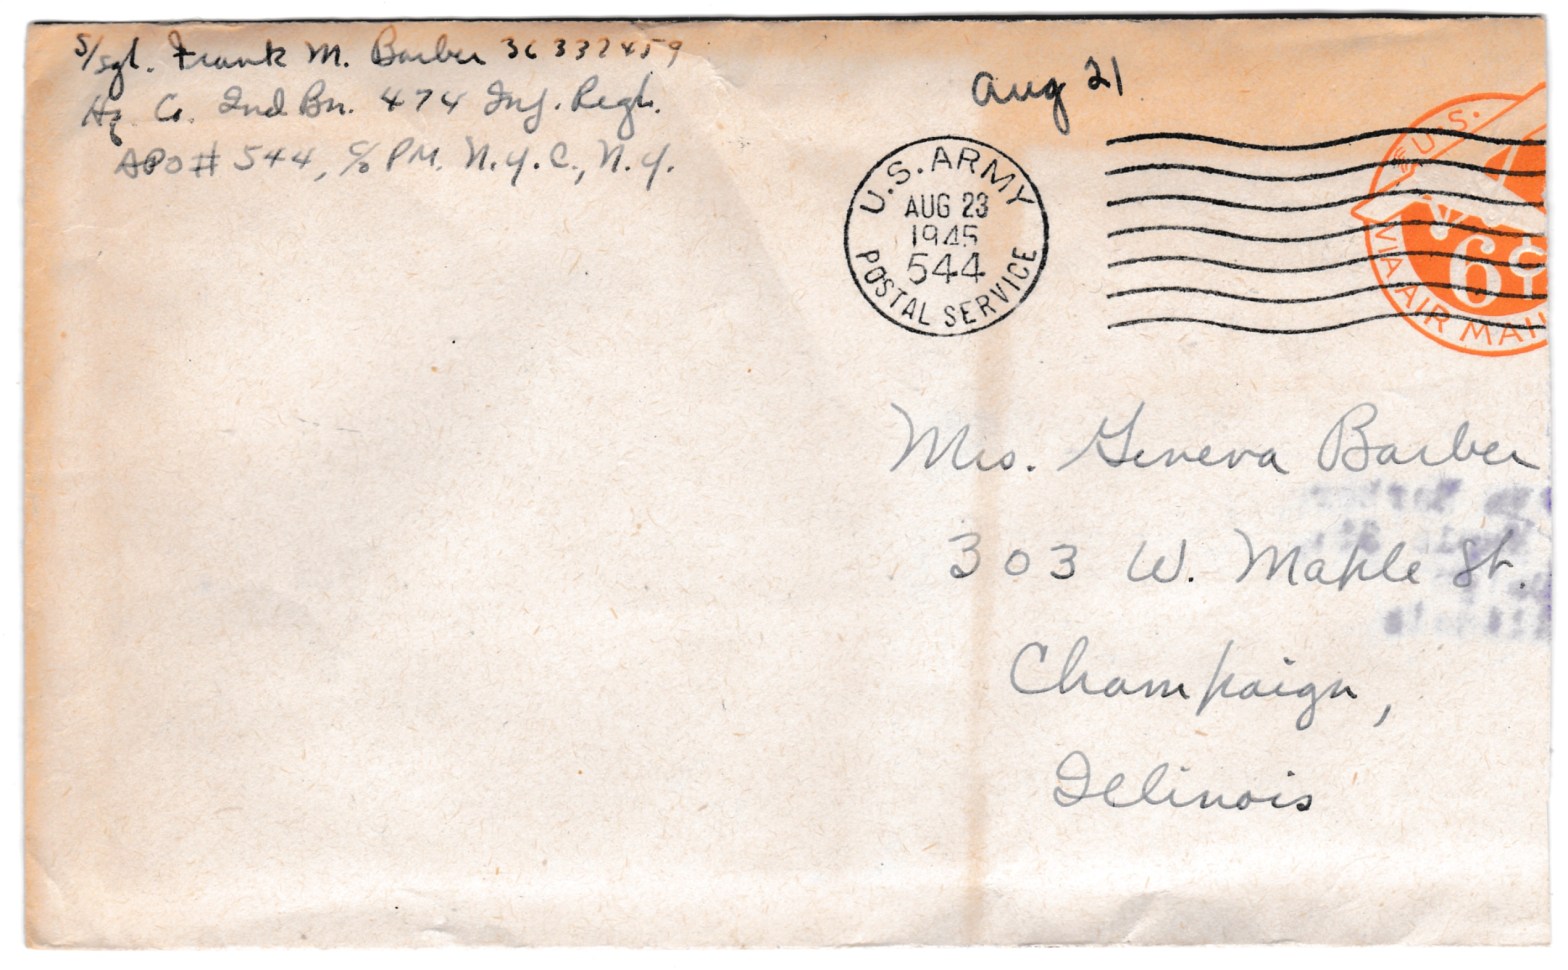 S/Sgt. Frank M. Barber 36337459
Hq. Co. 2nd Bn. 474 Inf. Regt.
APO # 544, c/o PM. N.Y.C., N.Y.
Aug 21
U.S. ARMY
AUG 23
1945
544
POSTAL SERVICE
U.S.
6¢
VIA AIR MAIL
Mrs. Geneva Barber
303 W. Maple St.
Champaign,
Illinois